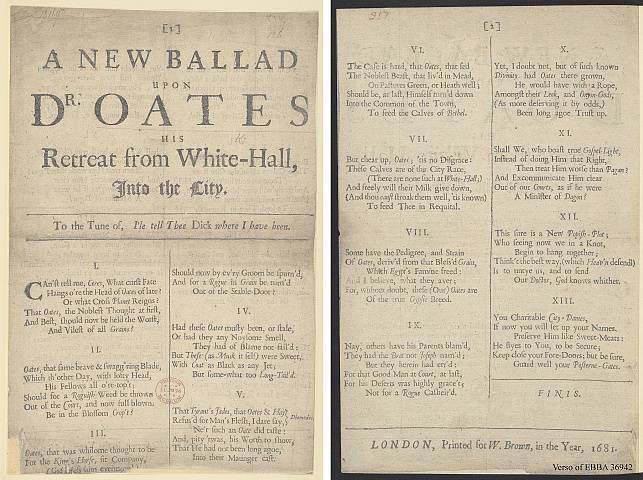 [1]
A NEW BALLAD
UPON
DR. OATES
HIS
Retreat from White-Hall,
Into the City.
To the Tune of, I'le tell Thee Dick where I have been.
I.
CAn'st tell me, Ceres, what curst Fate
Hangs o're the Head of Oates of late?
Or what Cross Planet Reigns?
That Oates, the Noblest Thought at first,
And Best, should now be held the Worst,
And Vilest of all Grains?
II.
Oates, that same brave & swagg'ring Blade,
Which th'other Day, with lofty Head,
His Fellows all o're-top't;
Should for a Roguish Weed be thrown
Out of the Court, and now full blown.
Be in the Blossom Crop't?
III.
Oates, that was whilome thought to be
For the King's Horse, fit Company,
Should now by ev'ry Groom be spurn'd,
And for a Rogue in Grain be turn'd
Out of the Stable-Door?
IV.
Had these Oates musty been, or stale,
Or had they any Noysome Smell,
They had of Blame not fail'd:
But These (as Musk it self) were Sweet,
With Coat as Black as any Jet;
But some-what too Long-Tail'd.
V.
That Tyrant's Jades, that Oates & Hay
Refus'd for Man's Flesh, I dare say,
Ne'r such an Oate did taste:
And, pity 'twas, his Worth to show,
That He had not been long agoe,
Into their Maunger cast.
Diomedes
[2]
VI.
The Case is hard, that Oates, that fed
The Noblest Beast, that liv'd in Mead,
On Pastures Green, or Heath well;
Should be, at last, Himself turn'd down
Into the Common of the Town,
To feed the Calves of Bethel.
VII.
But chear up, Oates; 'tis no Disgrace:
These Calves are of the City Race,
(There are none such at White-Hall;)
And freely will their Milk give down,
(And thou must stroak them well, 'tis known)
To feed Thee in Requital.
VIII.
Some have the Pedigree, and Strain
Of Oates, deriv'd from that Bless'd Grain,
Which Egypt's Famine freed:
And I believe, what they aver;
For, without doubt, these (Our) Oates are
Of the true Gypsie Breed.
IX.
Nay, others have his Parents blam'd,
They had the Brat not Joseph nam'd;
But they herein had err'd:
For that Good Man at Court, at last,
For his Deserts was highly grac't;
Not for a Rogue Casheir'd.
X.
Yet, I doubt not, but of such known
Divinity had Oates there grown,
He would have with a Rope,
Amongst their Leek, and Onyon-Gods,
(As more deserving it by odds,)
Been long agoe Trust up.
XI.
Shall We, who boast true Gospel-Light,
Instead of doing Him that Right,
Then treat Him worse than Pagan?
And Excommunicate Him clear
Out of our Courts, as if he were
A Minister of Dagon?
XII.
This sure is a New Popish-Plot;
Who seeing now we in a Knot,
Begin to hang together;
Think't the best way, (which Heav'n defend)
Is to untye us, and to send
Our Doctor, God knows whither.
XIII.
You Charitable City-Dames,
If now you will let up your Names.
Preserve Him like Sweet-Meats:
He flyes to You, to be Secure;
Keep close your Fore-Doors; but be sure,
Guard well your Posterne-Gates.
FINIS.
LONDON, Printed for W. Brown, in the Year, 1681.
Verso of EBBA 36942